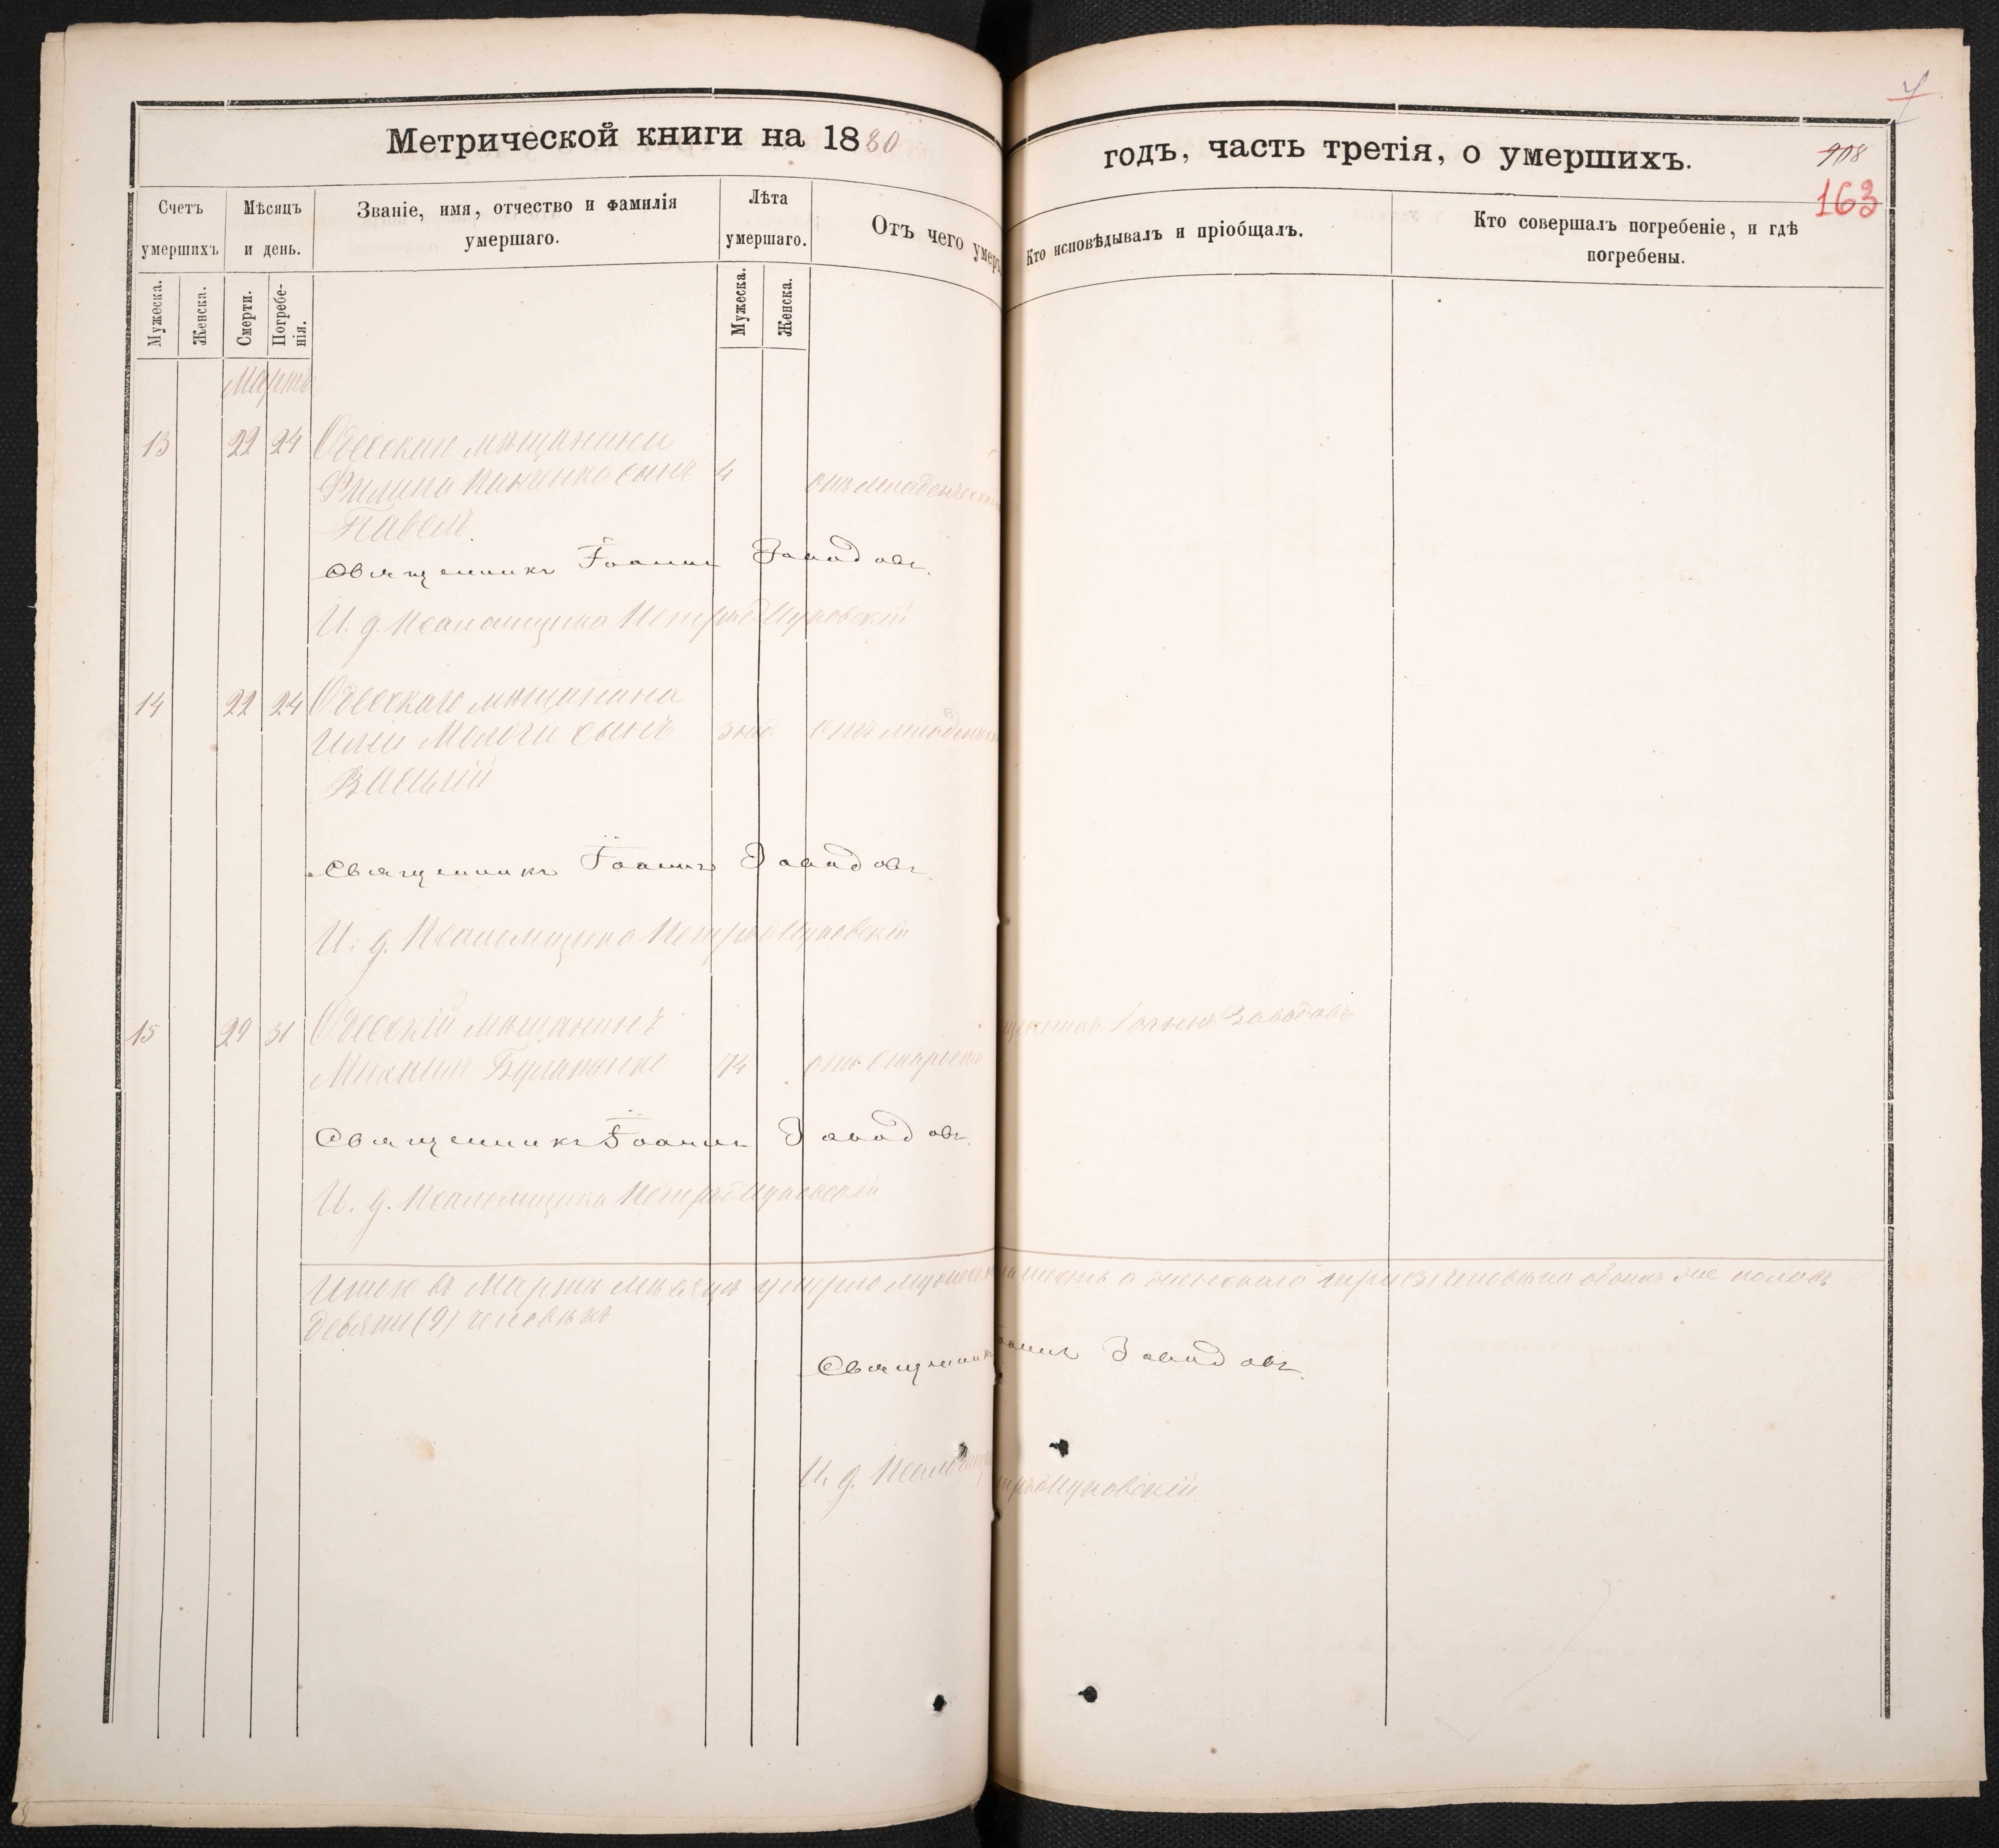 Метрической книги на 1880
годъ, часть третія, о умершихъ.
908
163
Счетъ умершихъ
Мѣсяцъ и день.
Званіе, имя, отчество и фамилія умершаго.
Лѣта умершаго.
Отъ чего умеръ
Кто исповѣдывалъ и пріобщалъ.
Кто совершалъ погребеніе, и гдѣ погребены.
Мужеска.
Женска.
Смерти.
Погребе-
нія.
Мужеска.
Женска.
Мартъ
13 22 24 Одесскаго мѣщанина
Филипа сынъ 4 отъ младенческой
Павелъ.
Священникъ Іоаннъ Заводовъ.
И. д. Псаломщика Петръ
14 22 24 Одесскаго мѣщанина
Иліи сынъ 3 нед. отъ младенческ
Василій
Священникъ Іоаннъ Заводовъ.
И. д. Псаломщика Петръ
15 29 31 Одесскій мѣщанинъ
Михаилъ 74 отъ старости
Іоаннъ Заводовъ
Священникъ Іоаннъ Заводовъ.
И. д. Псаломщика Петръ
Итого въ Мартѣ мѣсяцѣ умерло шесть а женскаго три человѣка обоего же пола
девять (9) человѣкъ
Священникъ Іоаннъ Заводовъ.
И. д.